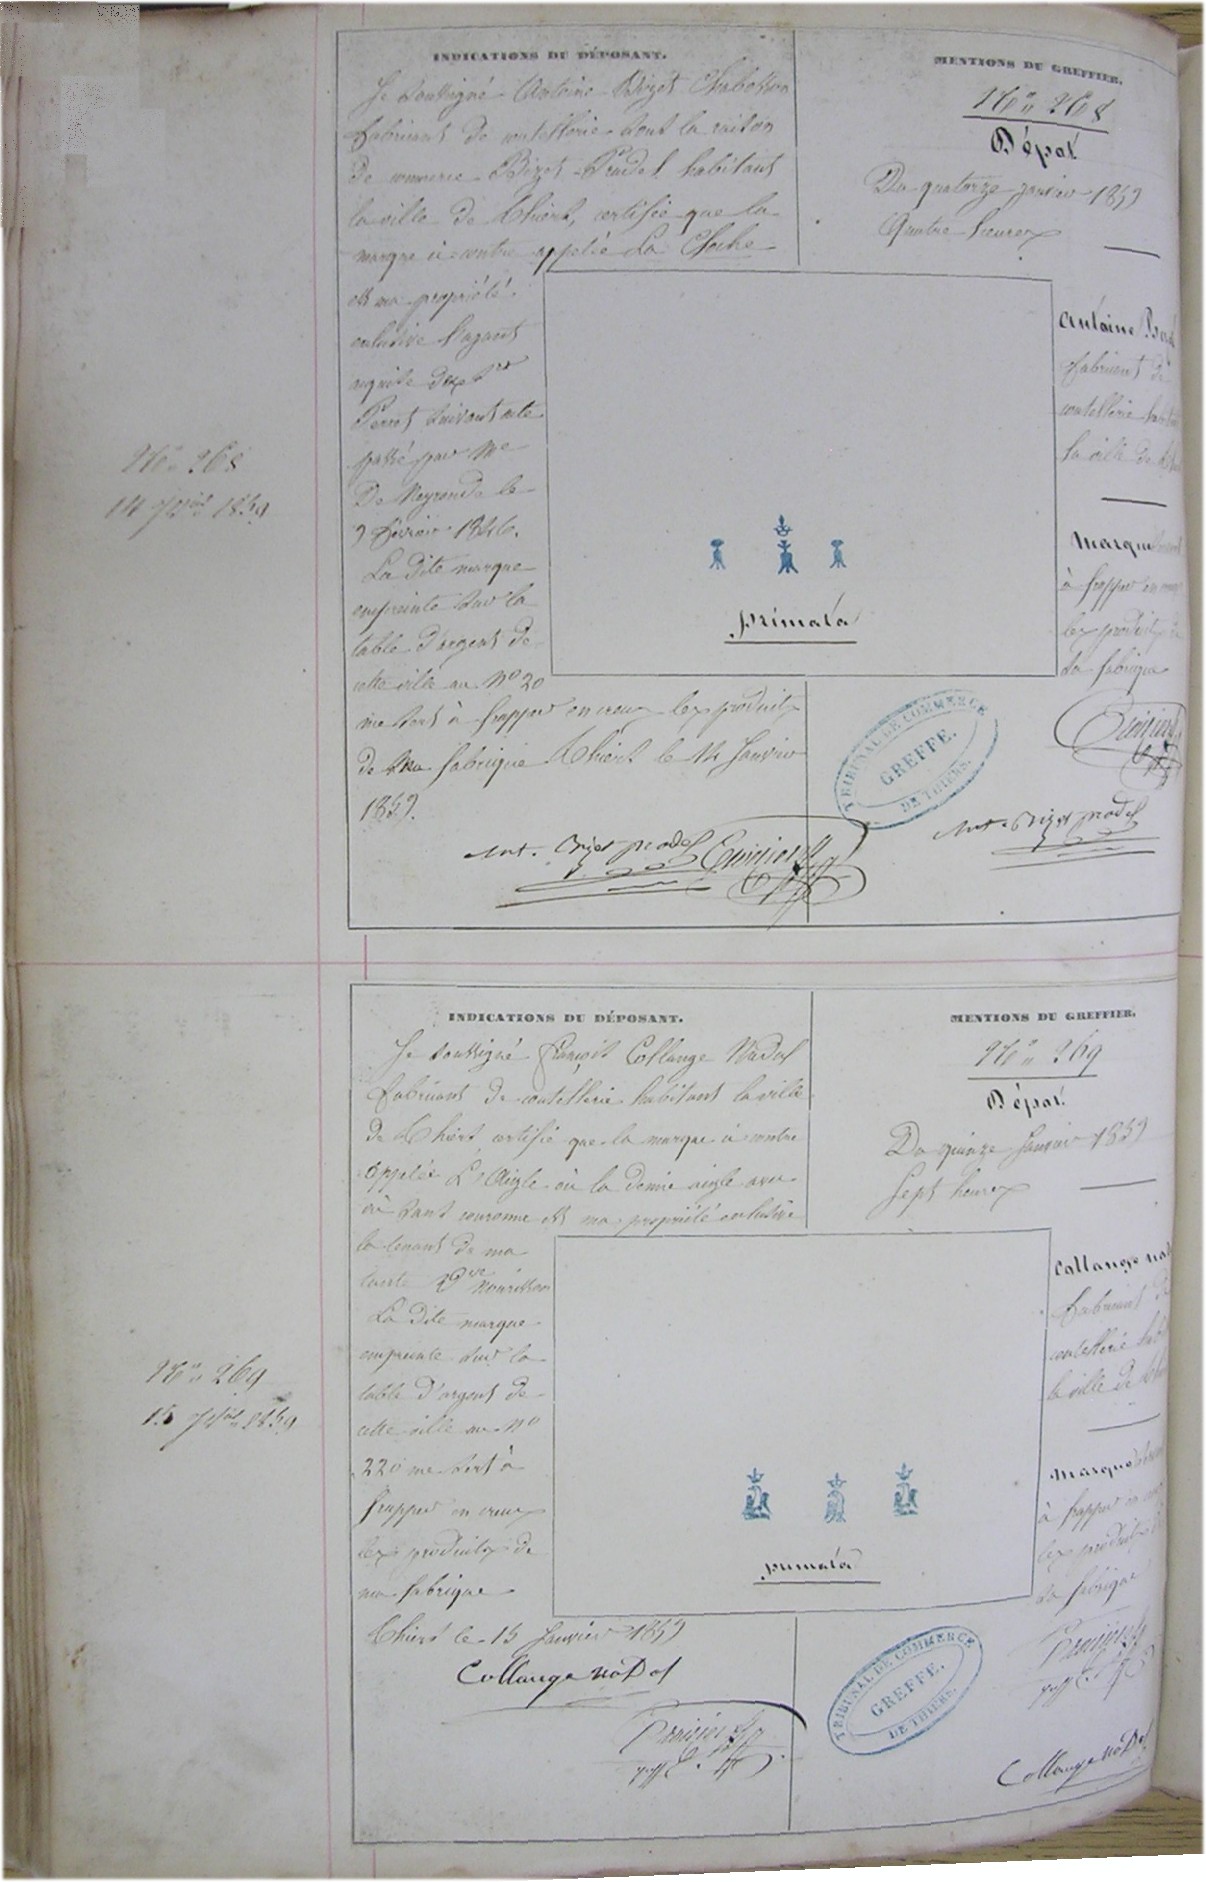 INDICATIONS DU DÉPOSANT.
Je soussigné Antoine Bizet Chabosson
fabricant de coutellerie dont la raison
de commerce Bizet-Pradel habitant
la ville de Thiers, certifie que la
marque ci-contre appelée La Cloche
est ma propriété
exclusive l'ayant
acquise
Perrot suivant acte
passé par Me
De Neyronde le
9 février 1846.
La dite marque
empreinte sur la
table d'argent de
cette ville au No 20
me sert à frapper en creux les produits
de ma fabrique Thiers le 14 Janvier
1859.
Ant. Bizet pradel
MENTIONS DU GREFFIER.
No 268
Dépôt
Du quatorze janvier 1859
Quatre heures
Antoine
fabricant de
coutellerie
la ville de
Marque
à frapper en
les produits de
sa fabrique
primata
TRIBUNAL DE COMMERCE
GREFFE.
DE THIERS.
Ant. Bizet pradel
No 268
14 Jver 1859
INDICATIONS DU DÉPOSANT.
Je soussigné françois Collange Nadal
fabricant de coutellerie habitant la ville
de Thiers, certifie que la marque ci contre
appelée L'Aigle ou la demie aigle avec
ou sant couronne est ma propriété exclusive
la tenant de ma
tante Vve Nourisson
La dite marque
empreinte sur la
table d'argent de
cette ville au No
220 me sert à
frapper en creux
les produits de
ma fabrique
Thiers le 15 Janvier 1859
Collange Nadal
MENTIONS DU GREFFIER.
No 269
Dépôt
Du quinze Janvier 1859
Sept heures
Collange
fabricant de
coutellerie
la ville de
Marque
à frapper en
les produits
sa fabrique
primata
TRIBUNAL DE COMMERCE
GREFFE.
DE THIERS.
Collange Nadal
No 269
15 Jver 1859